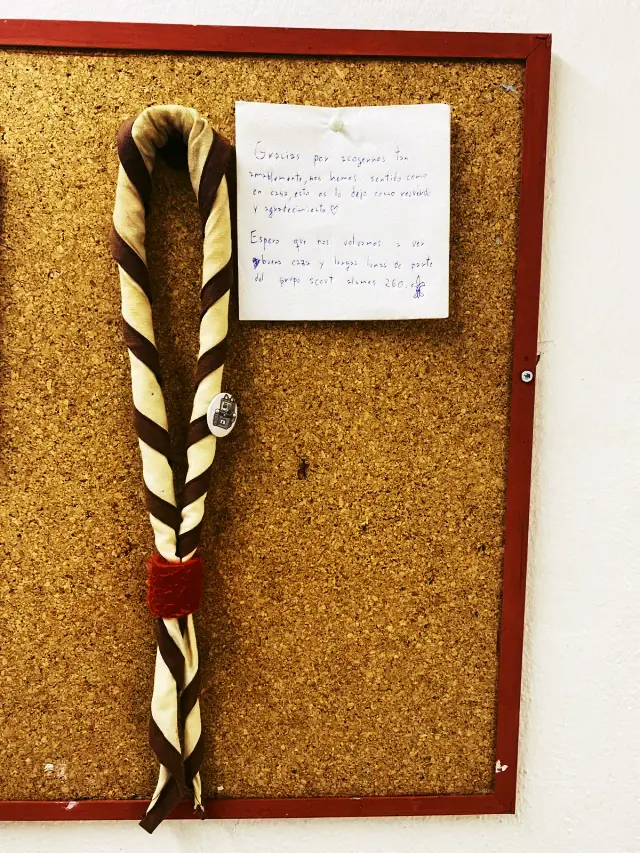 Gracias por acogernos tan
amablemente, nos hemos sentido como
en casa, esto os lo dejo como recuerdo
y agradecimiento
Espero que nos volvamos a ver
buena caza y largas lunas de parte
del grupo scout 260.